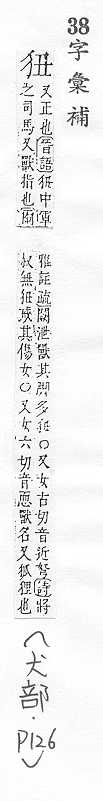 38
字彙補
狃
又正也晉語狃中軍
之司馬又獸指也爾
雅註疏闕泄獸其脚多狃○又女古切音近弩詩將
叔無狃戒其傷女○又女六切音恧獸名又狐狸也
(犬部.P126)